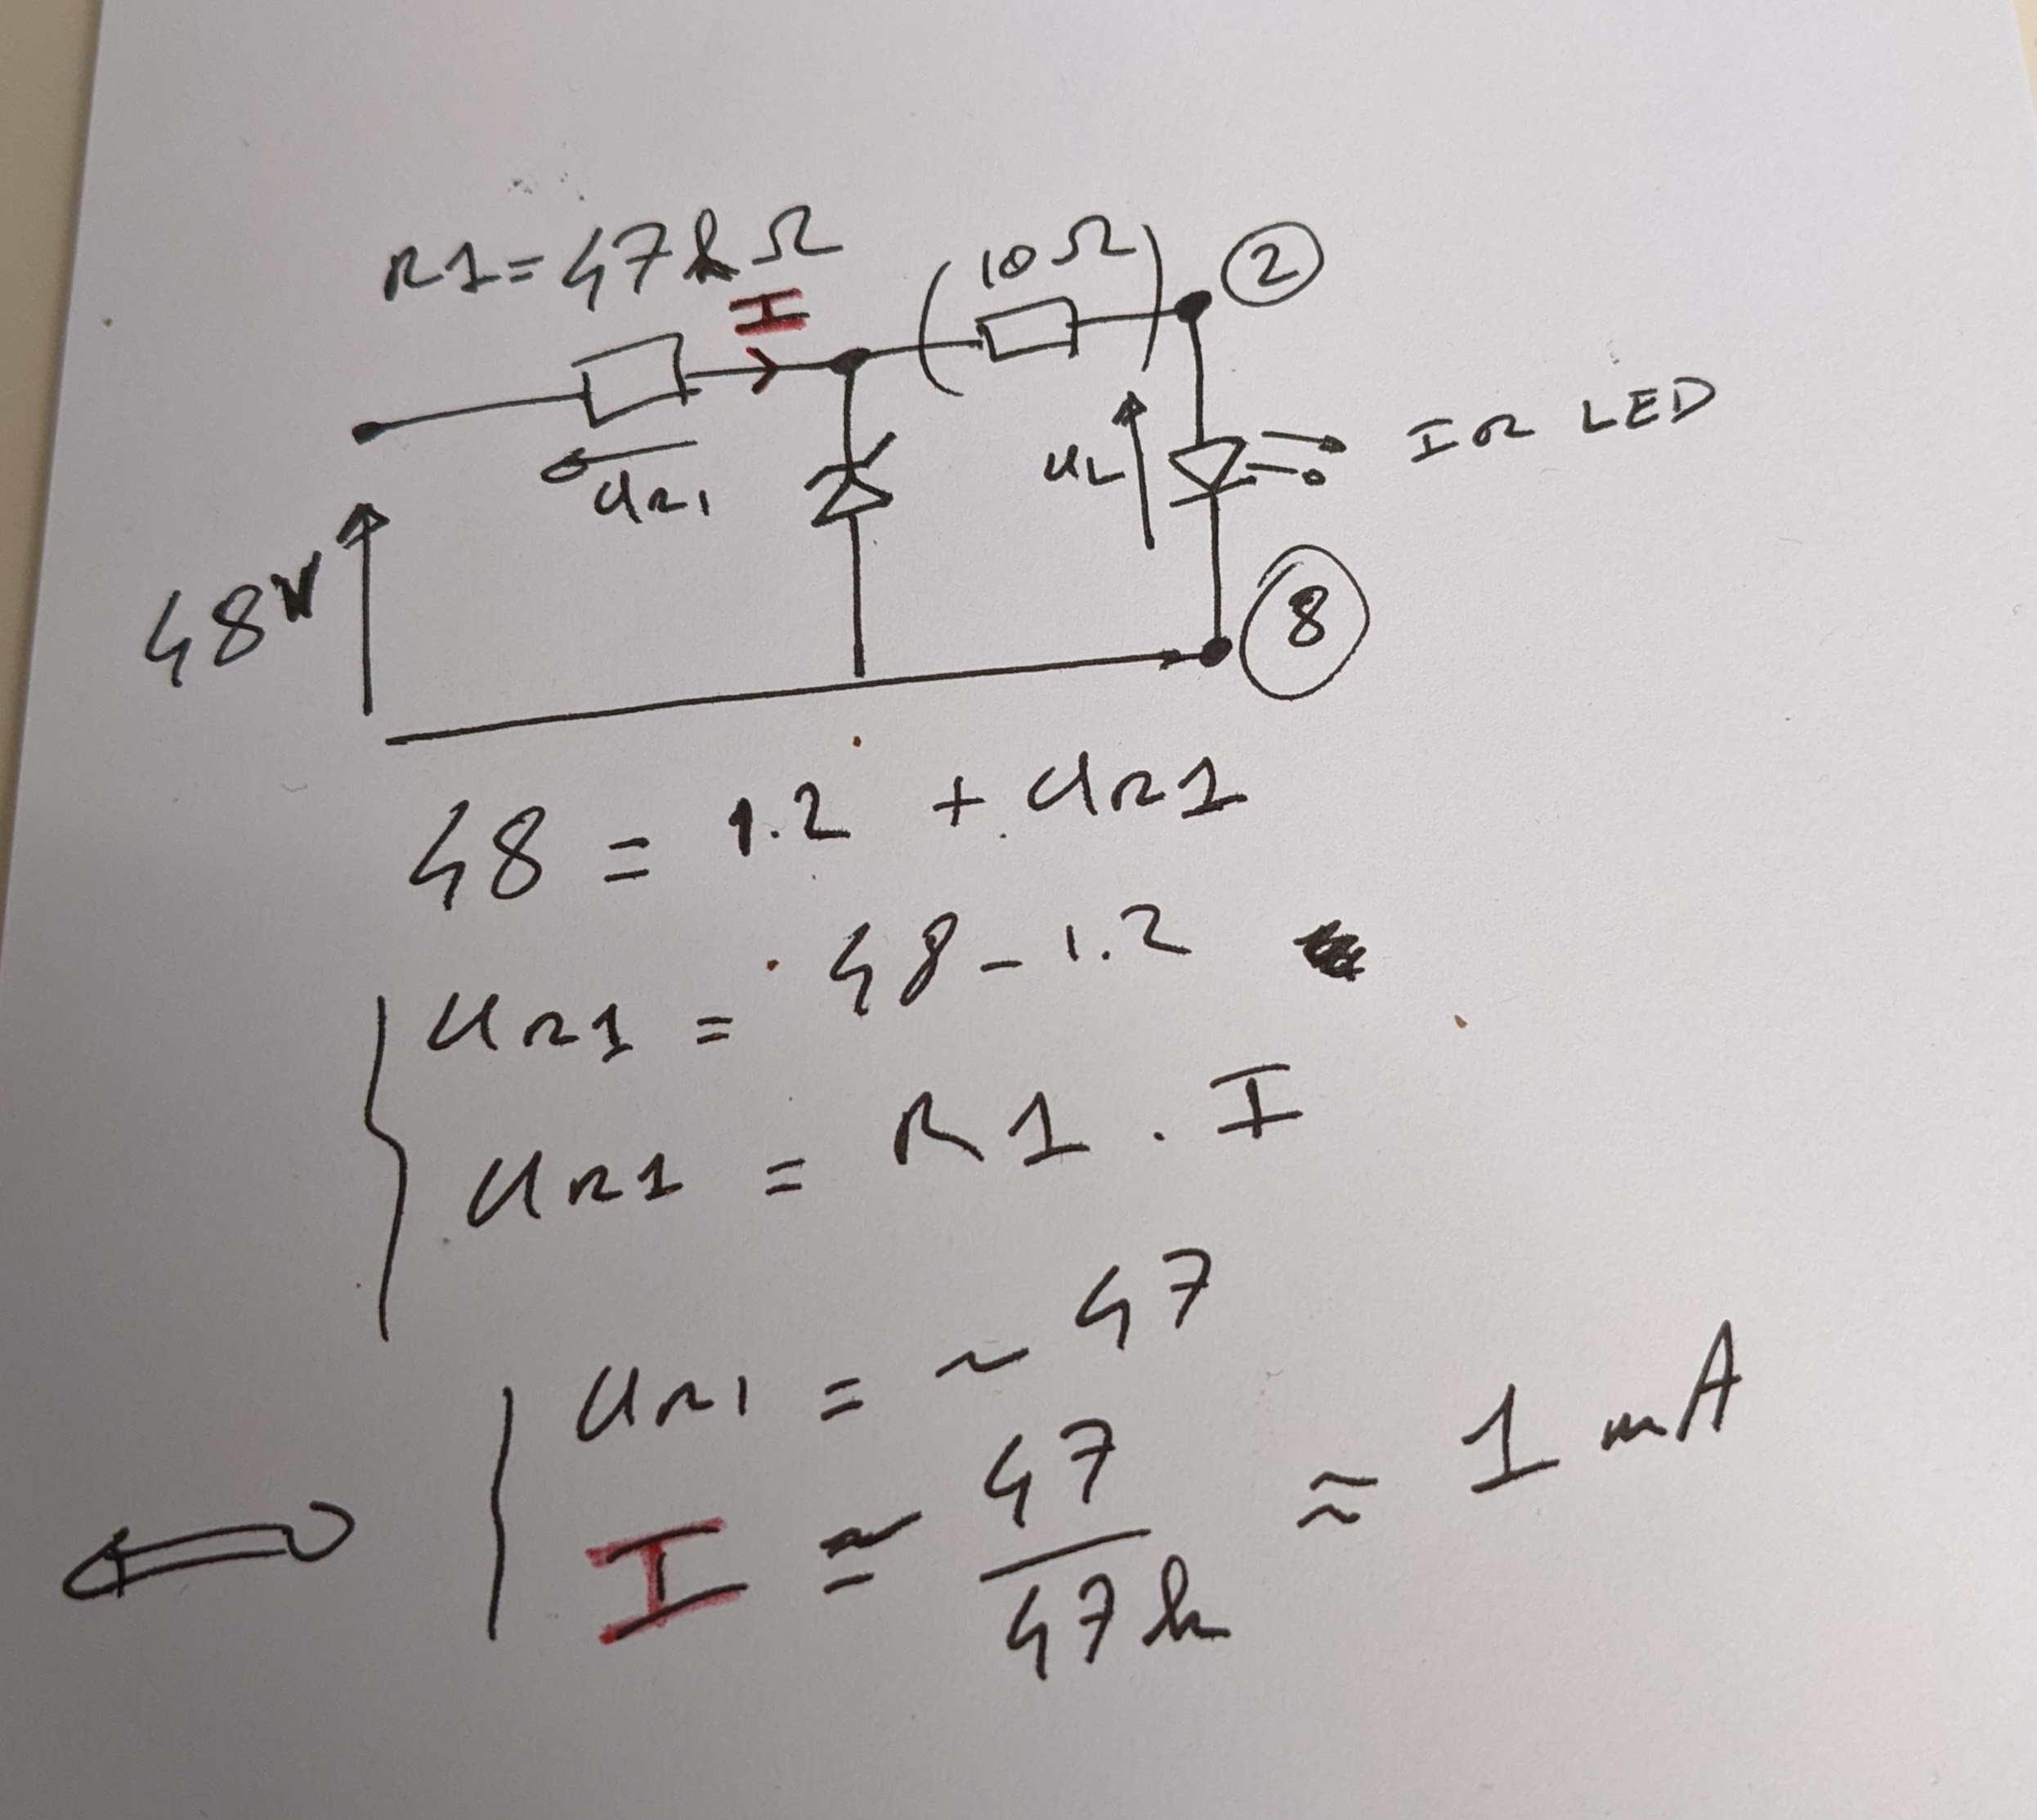 R1=47kΩ
I
(10Ω)
2
UR1
UL
IR LED
48V
8
48 = 1.2 + UR1
UR1 = 48 - 1.2
UR1 = R1 . I
UR1 = ~ 47
I ≃ 47/47k ≈ 1 mA